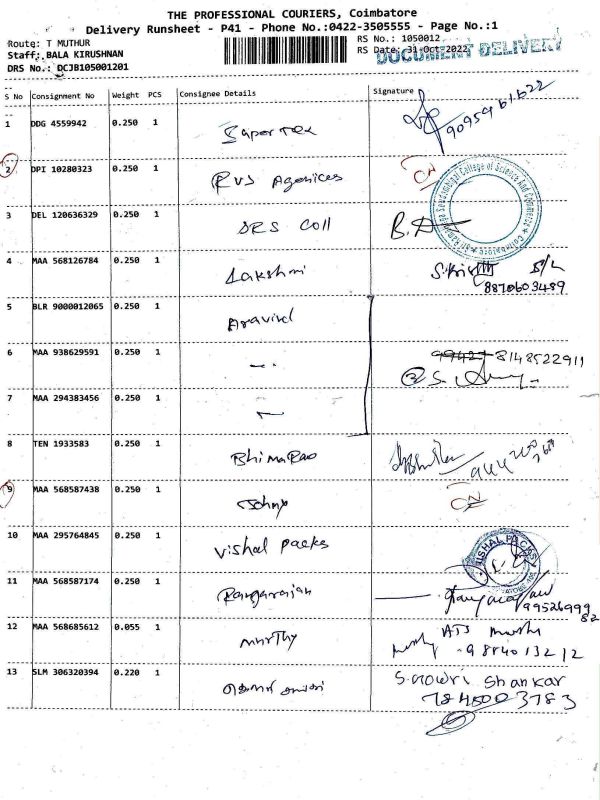 THE PROFESSIONAL COURIERS, Coimbatore
Delivery Runsheet - P41 - Phone No.:0422-3505555 - Page No.:1
Route: T MUTHUR
RS No.: 1050012
Staff: BALA KIRUSHNAN
RS Date: 31-Oct-2022
DOCUMENT DELIVERY
DRS No.: DCJB105001201
S No Consignment No Weight PCS Consignee Details Signature
1 DDG 4559942 0.250 1 Super Tex
2 DPI 10280323 0.250 1 RVS Agencies CN
3 DEL 120636329 0.250 1 SRS Coll
College of Science And Commerce
Coimbatore
4 MAA 568126784 0.250 1 Lakshmi
8870603489
5 BLR 9000012065 0.250 1 Aravind
6 MAA 938629591 0.250 1 8148522911
7 MAA 294383456 0.250 1
8 TEN 1933583 0.250 1 BhimaRao
9 MAA 568587438 0.250 1 Johny CN
10 MAA 295764845 0.250 1 Vishal packs
VISHAL PACKS
11 MAA 568587174 0.250 1 Rangarajan
9952699982
12 MAA 568685612 0.055 1 Murthy
9884013212
13 SLM 306320394 0.220 1 S.Gowri Shankar
7845003783